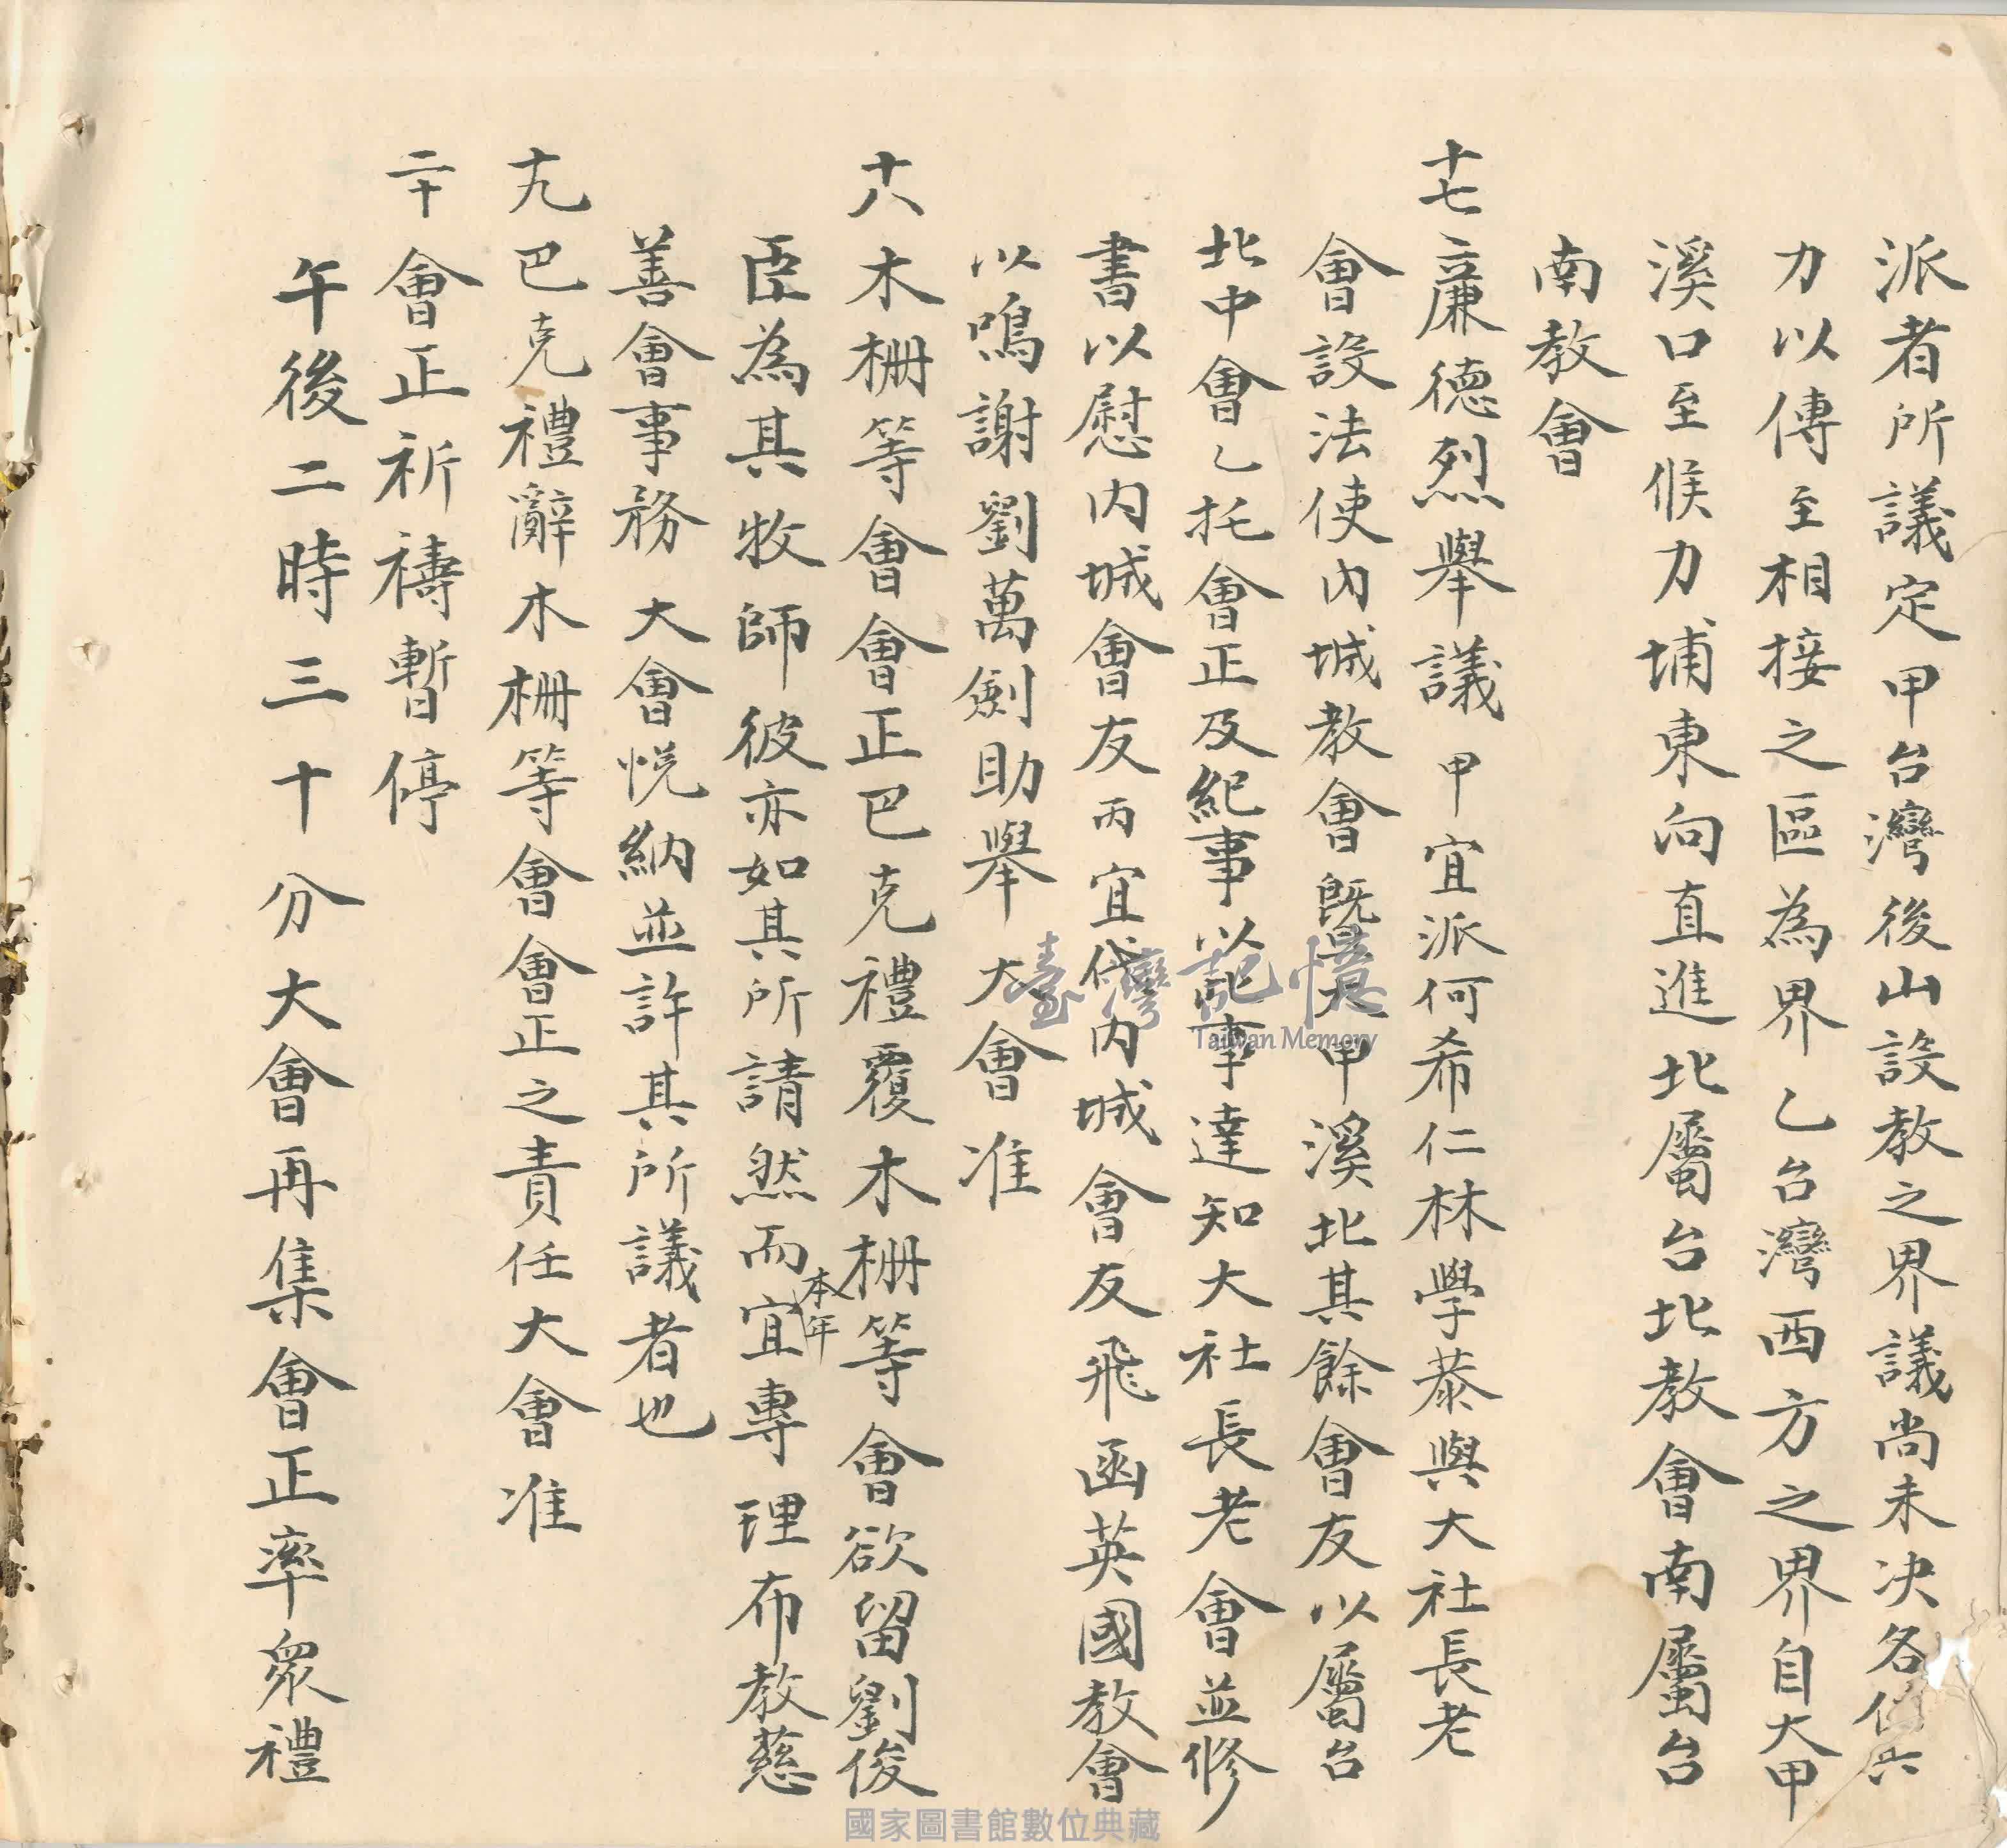 派者所議定甲台灣後山設教之界議尚未决各
力以傳至相接之區為界乙台灣西方之界自大甲
溪口至候力埔東向直進北屬台北教會南屬台
南教會
十七亷德烈舉議甲宜派何希仁林學恭與大社長老
會設法使內城教會既大甲溪北其餘會友以屬台
北中會乙托會正及紀事以此事達知大社長老會並修
書以慰內城會友丙宜代內城會友飛函英國教會
以鳴謝劉萬劍助舉大會准
十八木柵等會會正巴克禮覆木柵等會欲留劉俊
臣為其牧師彼亦如其所請然而本年宜專理布教慈
善會事務大會悅納並許其所議者也
十九巴克禮辭木柵等會會正之責任大會准
二十會正祈禱暫停
午後二時三十分大會再集會正率眾禮
臺灣記憶
Taiwan Memory
國家圖書館數位典藏